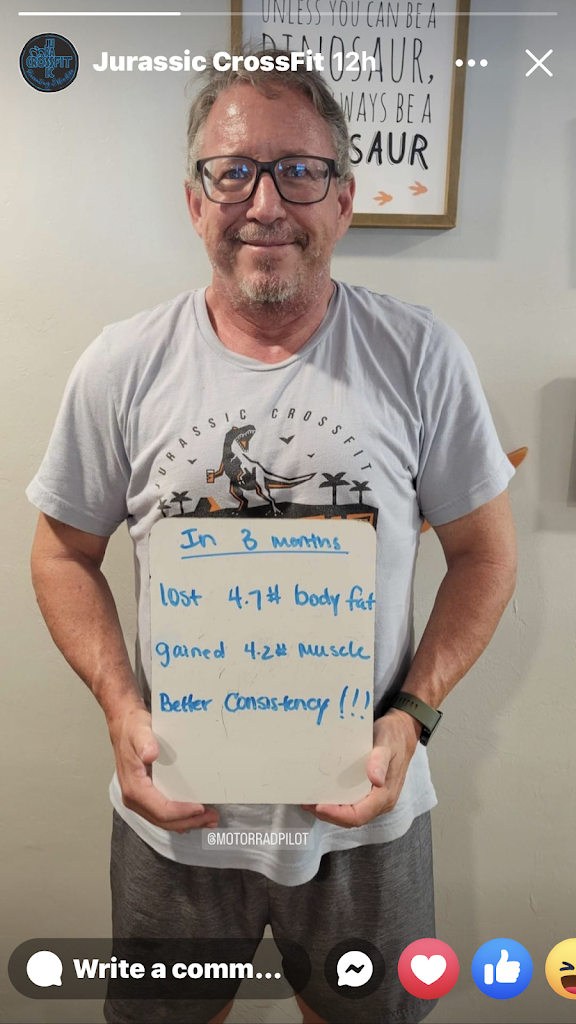 Jurassic CrossFit 12h
UNLESS YOU CAN BE A
DINOSAUR,
WAYS BE A
SAUR
JURASSIC CROSSFIT
In 3 months
lost 4.7# body fat
gained 4.2# muscle
Better Consistency !!!
@MOTORRADPILOT
Write a comm...